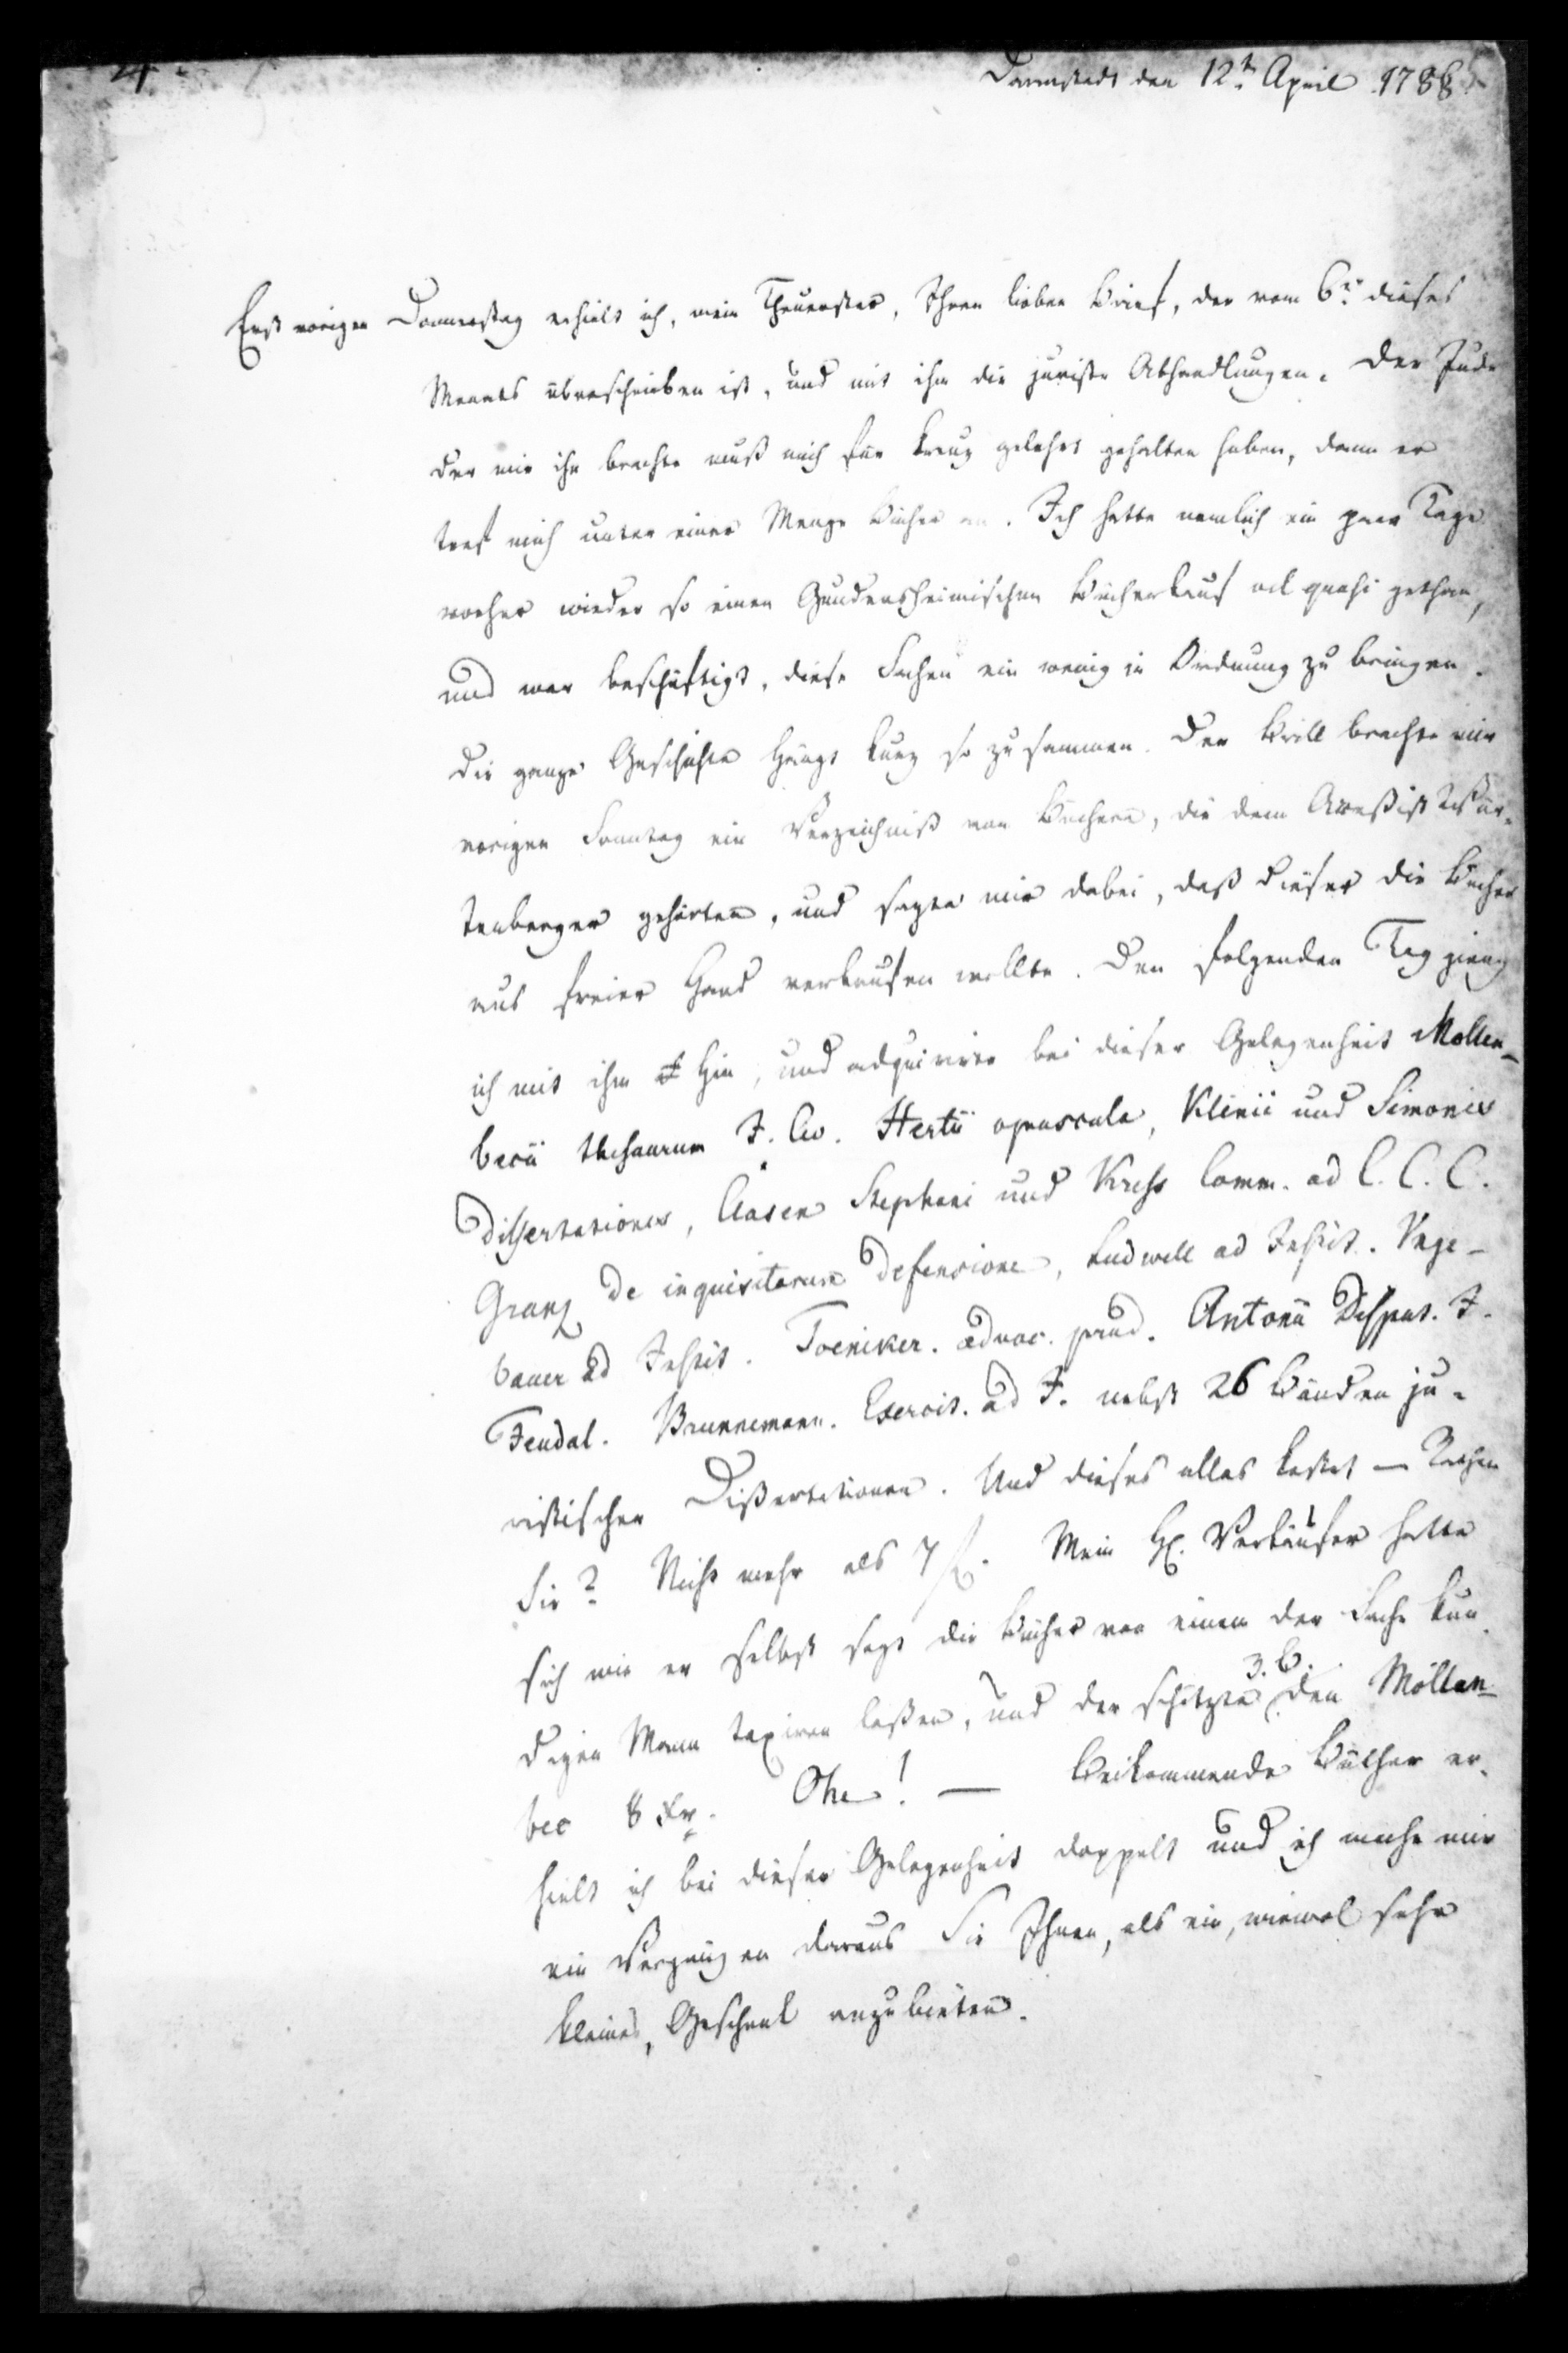 24.
Darmstadt den 12t. April 1788.
Erst vorigen Donnerstag erhielt ich, mein Theuerster, Ihren lieben Brief, der vom 6n. dieses
Monats überschrieben ist, und mit ihm die juristn Abhandlungen. Der Jude
der mir ihn brachte muß mich für kreuz gelehrt gehalten haben, denn er
traf mich unter einer Menge Bücher an. Ich hatte nemlich ein paar Tage
vorher wieder so einen Gundersheimischen Bücherkauf vel quasi gethan,
und war beschäftigt, diese Sachen ein wenig in Ordnung zu bringen.
Die ganze Geschichte hängt kurz so zusammen. Der Brill brachte mir
vorigen Sonntag ein Verzeichniß von Büchern, die dem Acceßist
tenberger gehörten, und sagte mir dabei, daß dieser die Bücher
aus freier Hand verkaufen wollte. Den folgenden Tag gieng
ich mit ihm hin, und adquirirte bei dieser Gelegenheit Mollen-
becii thesaurum J. Civ. Hertii opuscula, Klinii und Simonis
Dissertationes, Clasen Stephani und Kress Comm. ad C. C. C.
Granz de inquisitorum defensione, Ludwell ad Instit. Vege-
bauer ad Instit. Toeniker. advoc. prud. Antonii Disput. J.
Feudal. Brunnemann. Exercit. ad J. nebst 26 Bänden ju-
ristischer Dißertationen. Und dieses alles kostet — Rathen
Sie? Nicht mehr als 7 f. Mein H. Verkäufer hatte
sich wie er selbst sagt die Bücher von einem der Sache kun-
digen Mann taxiren laßen, und der schätzte z. B. den Möllen-
bec 8 Xr. Ohe! — Beikommende Bücher er-
hielt ich bei dieser Gelegenheit doppelt und ich mache mir
ein Vergnügen daraus Sie Ihnen, als ein, wiewol sehr
kleines, Geschenk anzubieten.